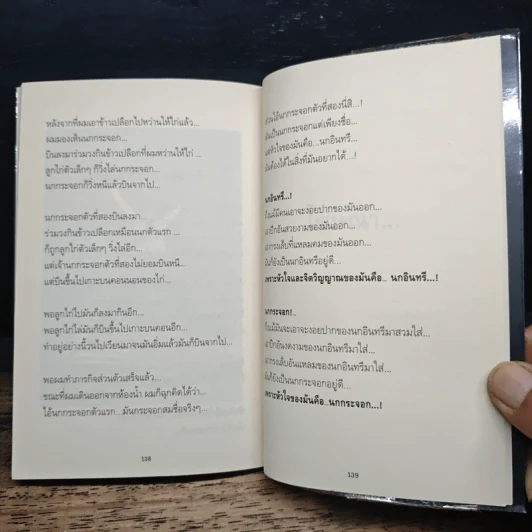 หลังจากที่ผมเอาข้าวเปลือกไปหว่านให้ไก่แล้ว...
ผมมองเห็นนกกระจอก...
บินลงมาร่วมวงกินข้าวเปลือกที่ผมหว่านให้ไก่ ...
ลูกไก่ตัวเล็กๆ ก็วิ่งไล่นกกระจอก...
นกกระจอกก็วิ่งหนีแล้วบินจากไป...
นกกระจอกตัวที่สองบินลงมา...
ร่วมวงกินข้าวเปลือกเหมือนนกตัวแรก ...
ก็ถูกลูกไก่ตัวเล็กๆ วิ่งไล่อีก...
แต่เจ้านกกระจอกตัวที่สองไม่ยอมบินหนี...
แต่บินขึ้นไปเกาะบนคอนนอนของไก่...
พอลูกไก่ไปมันก็ลงมากินอีก...
พอลูกไก่ไล่มันก็บินขึ้นไปเกาะบนคอนอีก...
ทำอยู่อย่างนี้วนไปเวียนมาจนมันอิ่มแล้วมันก็บินจากไป...
พอผมทำภารกิจส่วนตัวเสร็จแล้ว...
ขณะที่ผมเดินออกจากห้องน้ำ ผมก็ฉุกคิดได้ว่า...
ไอ้นกกระจอกตัวแรก...มันกระจอกสมชื่อจริงๆ...
138
ส่วนไอ้นกกระจอกตัวที่สองนี่สิ...!
เป็นนกกระจอกแต่เพียงชื่อ...
หัวใจของมันคือ...นกอินทรี...
ต้องได้ในสิ่งที่มันอยากได้ ...!
นกอินทรี...!
ถึงแม้มีคนเอาจะงอยปากของมันออก...
เอาปีกอันสวยงามของมันออก...
เอากรงเล็บที่แหลมคมของมันออก...
มันก็ยังเป็นนกอินทรีอยู่ดี...
เพราะหัวใจและจิตวิญญาณของมันคือ... นกอินทรี...!
นกกระจอก!..
ถึงแม้มันจะเอาจะงอยปากของนกอินทรีมาสวมใส่...
เอาปีกอันงดงามของนกอินทรีมาใส่...
เอากรงเล็บอันแหลมของนกอินทรีมาใส่...
มันก็ยังเป็นนกกระจอกอยู่ดี...
เพราะหัวใจของมันคือ...นกกระจอก...!
139